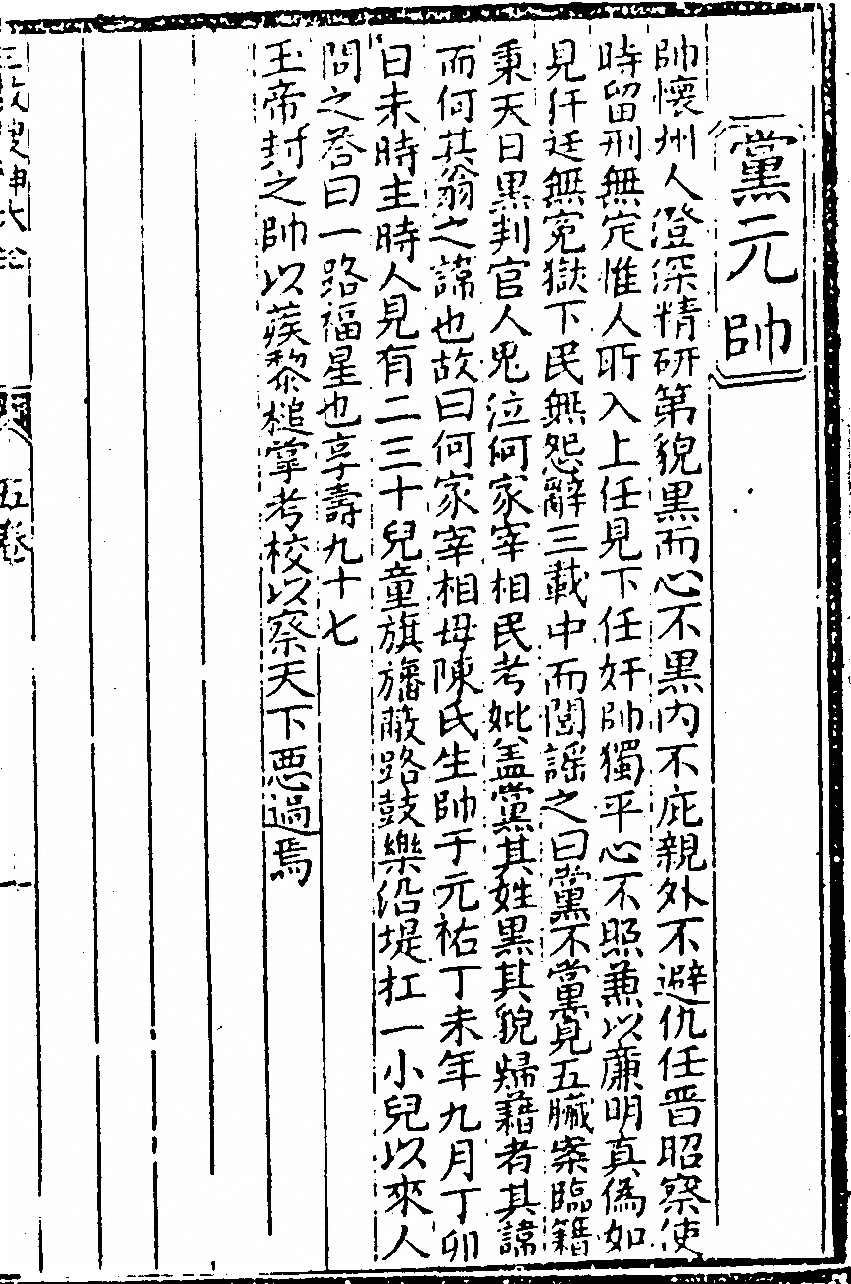 黨元帥
帥懷州人澄深精研第貌黑而心不黑內不庇親外不避仇任晋昭察使
時留刑無定惟人所入上任見下任奸帥獨平心不照兼以廉明真偽如
見仟廷無冤獄下民無怨辭三載中而閭謡之曰黨不黨見五臟案臨籍
秉天日黑判官人鬼泣何家宰相民考妣盖黨其姓黑其貌㷌藉者其諱
而何其翁之諱也故曰何家宰相母陳氏生帥于元祐丁未年九月丁卯
日未時主時人見有二三十兒童旗旛蔽路鼓樂沿堤扛一小兒以來人
問之答曰一路福星也享壽九十七
玉帝封之帥以蒺藜槌掌考校以察天下惡過焉
五卷